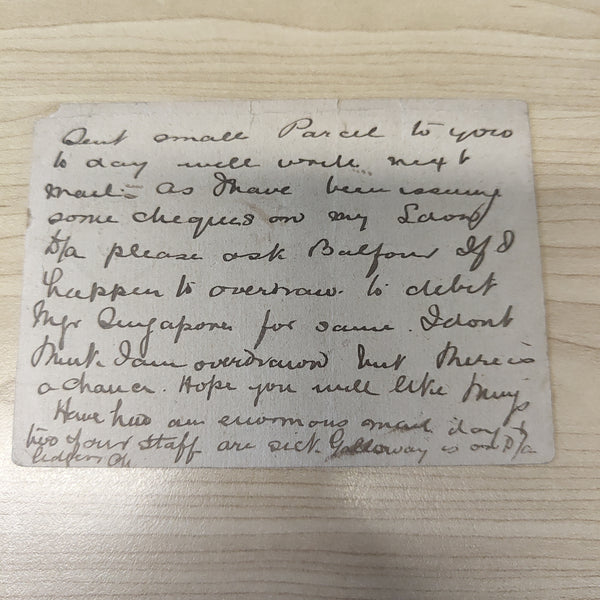 Sent small Parcel to you
to day will write next
mail - As I have been issuing
some cheques on my
D/a please ask Balfour If I
happen to overdraw to debit
Mgr Singapore for same. I dont
think I am overdrawn but there is
a chance. Hope you will like things
Have had an enormous mail day &
two of our staff are sick Galloway is on D/a
ledgers